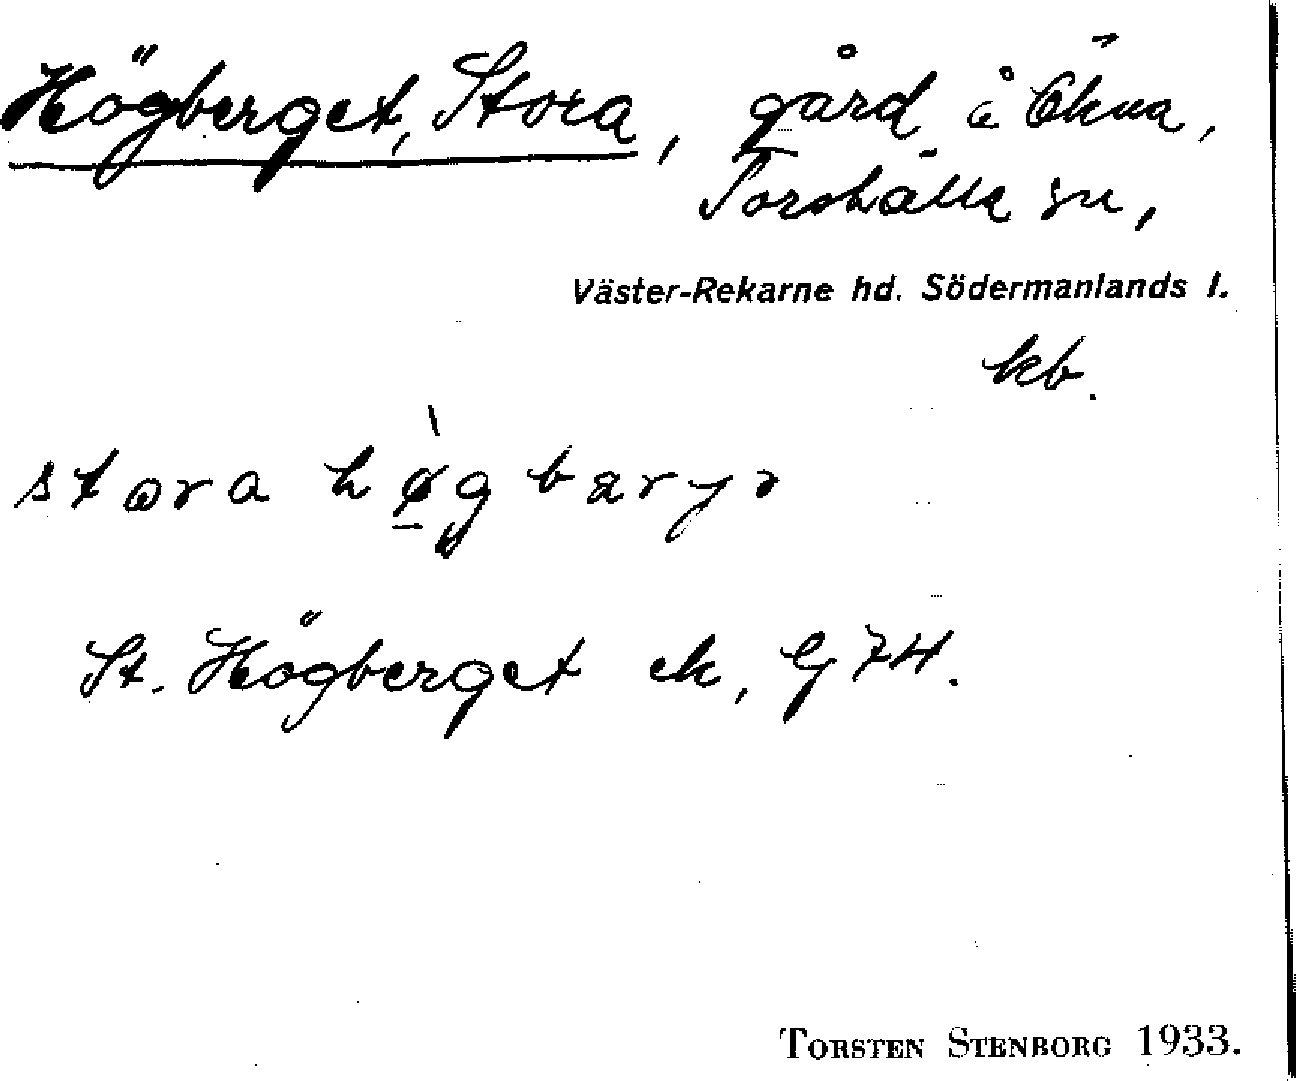 Högberget, Stora, gård å Ökna,
Torshälla sn,
Väster-Rekarne hd. Södermanlands l.
kb.
stora
St. Högberget ek, G 74.
TORSTEN STENBORG 1933.